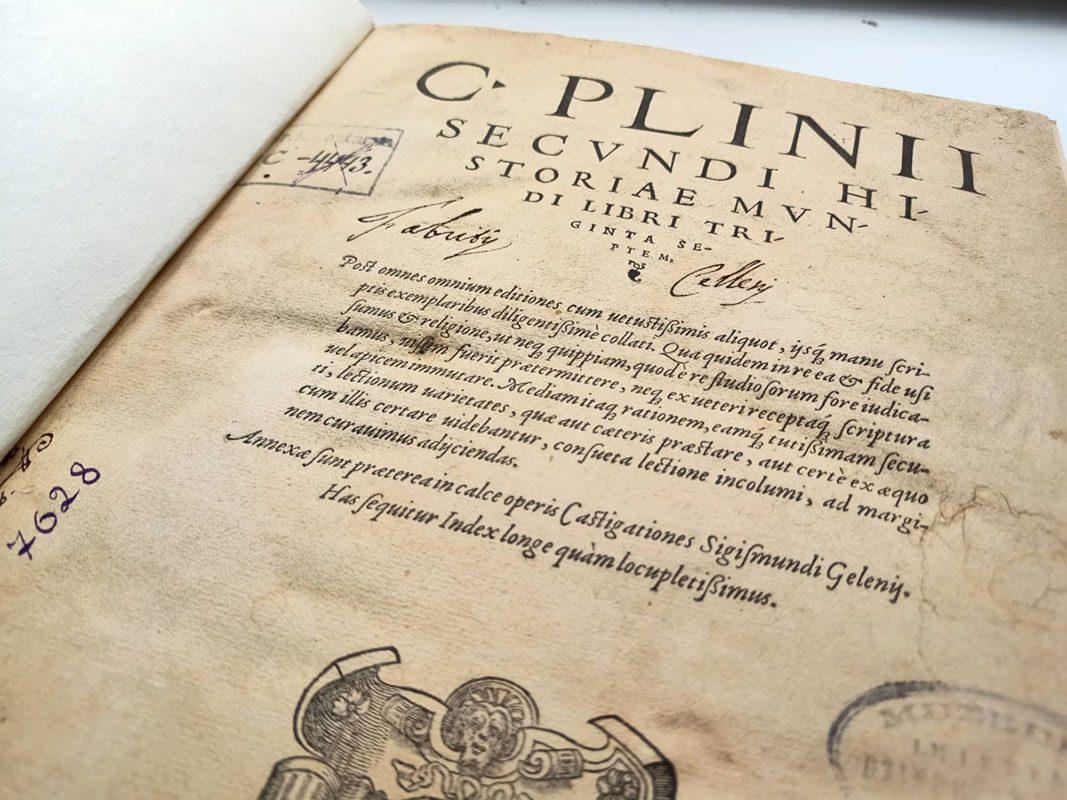 C. PLINII
SECVNDI HI-
STORIAE MVN-
DI LIBRI TRI-
GINTA SE-
PTEM,
C -4443.
Fabricij
Post omnes omnium editiones cum uetustißimis aliquot, ijsq́; manu scri-
ptis exemplaribus diligentißimè collati. Qua quidem in re ea & fide usi
sumus & religione, ut neq; quippiam, quod è re studiosorum fore iudica-
bamus, fuerit prætermittere, neq; ex ueteri receptaq́; scriptura
uel apicem immutare. Mediam itaq; rationem, eamq́; tutißimam secu-
ti, lectionum uarietates, quæ aut cæteris præstare, aut certè ex æquo
cum illis certare uidebantur, consueta lectione incolumi, ad margi-
nem curauimus adijciendas.
Annexæ sunt præterea in calce operis Castigationes Sigismundi Gelenij.
Has sequitur Index longe quàm locupletißimus.
7628